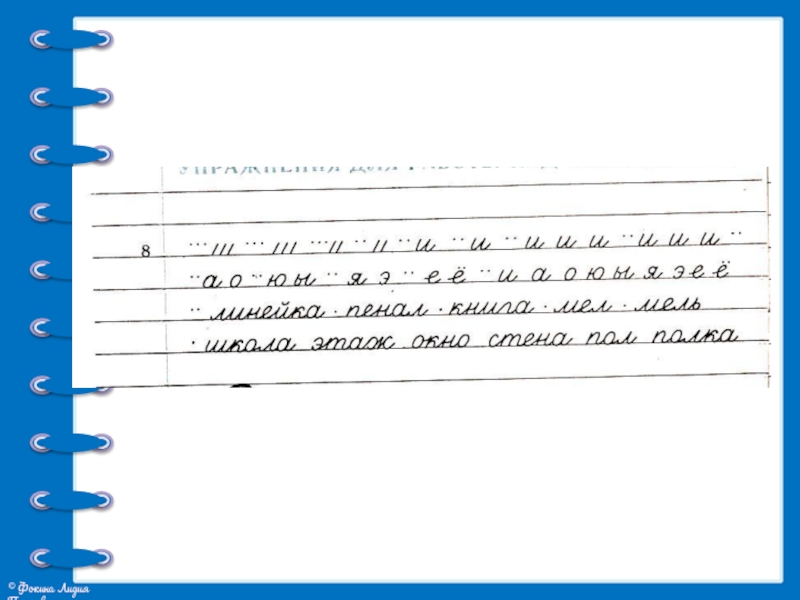 УПРАЖНЕНИЯ ДЛЯ
8
и и и и и и и и
а о ю ы я э е ё и а о ю ы я э е ё
линейка · пенал · книга · мел · мель
школа этаж окно стена пол полка
© Фокина Лидия